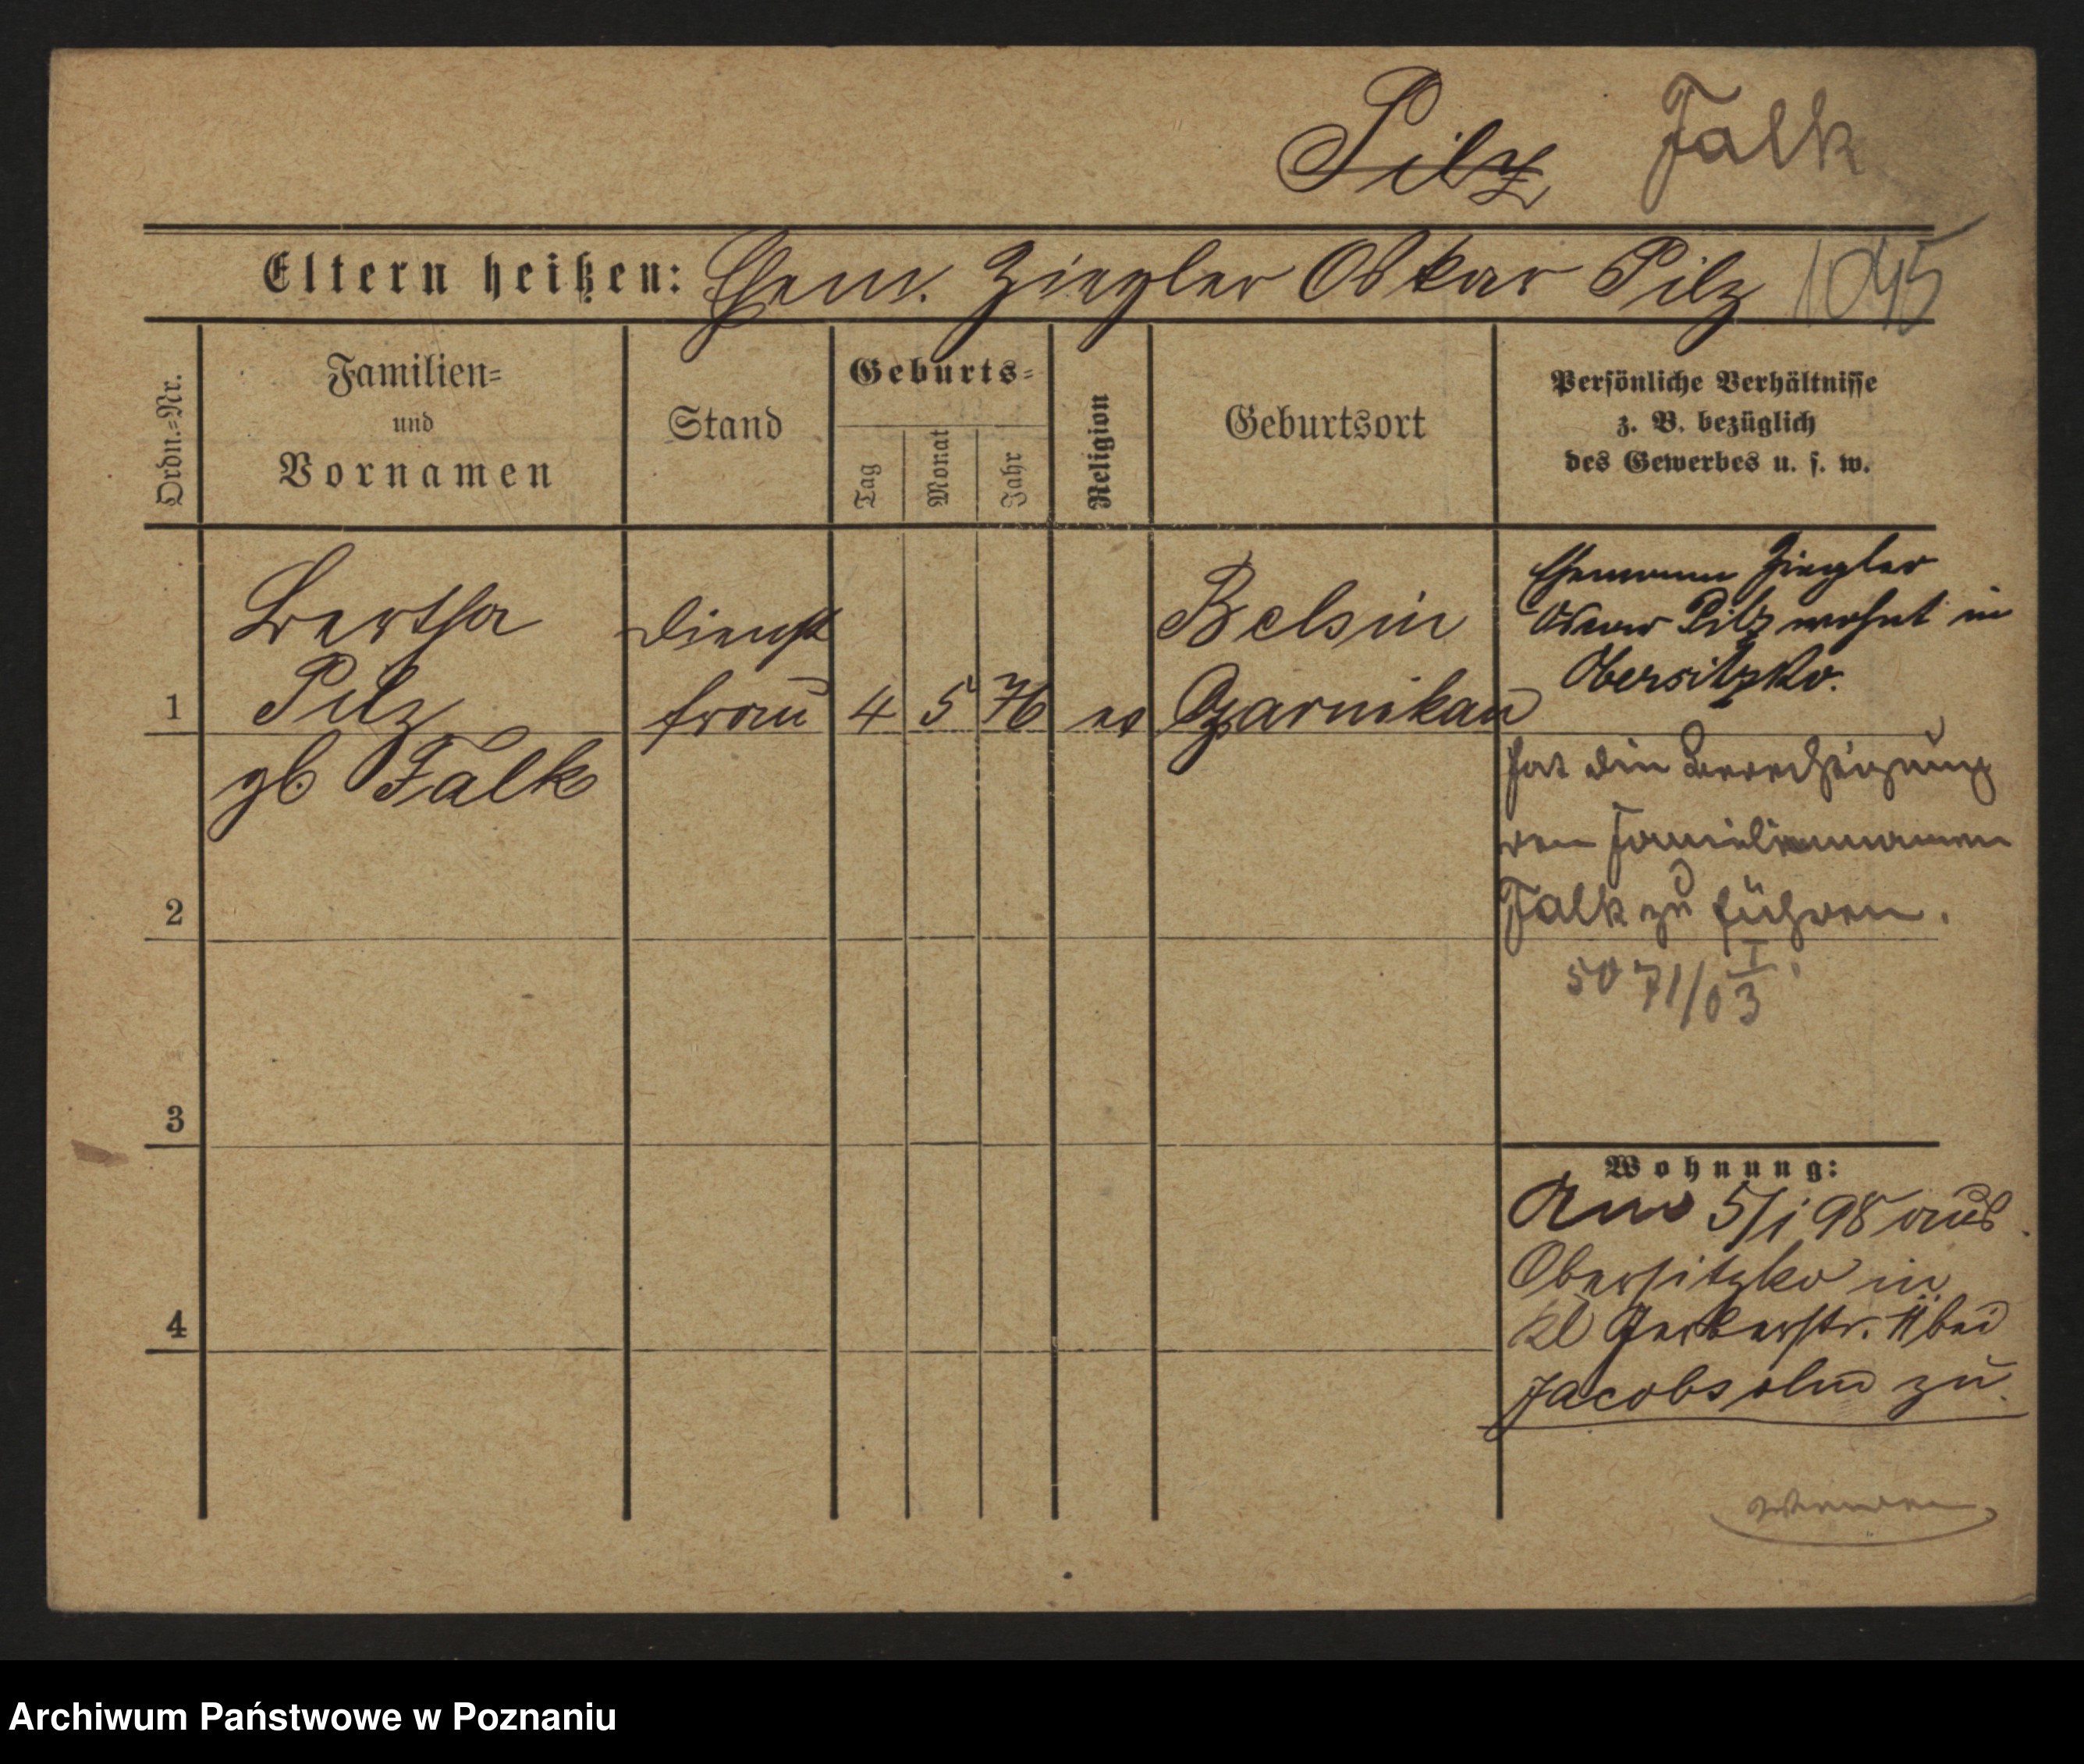 Pilz Falk
Eltern heißen: Ehem. Ziegler Oskar Pilz 1045
Ordn.=Nr.
Familien=
und
Vornamen
Stand
Geburts=
Tag
Monat
Jahr
Religion
Geburtsort
Persönliche Verhältnisse
z. B. bezüglich
des Gewerbes u. s. w.
1
Bertha
Pilz
gb Falk
Dienst
frau
4 5 76
ev
Belsin
Czarnikau
Ehemann Ziegler
Oskar Pilz wohnt in
Obersitzko.
hat die Berechtigung
den Familiennamen
Falk zu führen.
5071/03 I
2
3
4
Wohnung:
5/1 98 aus
Obersitzko in
kl Gerberstr. 11 bei
Jacobsohn zu